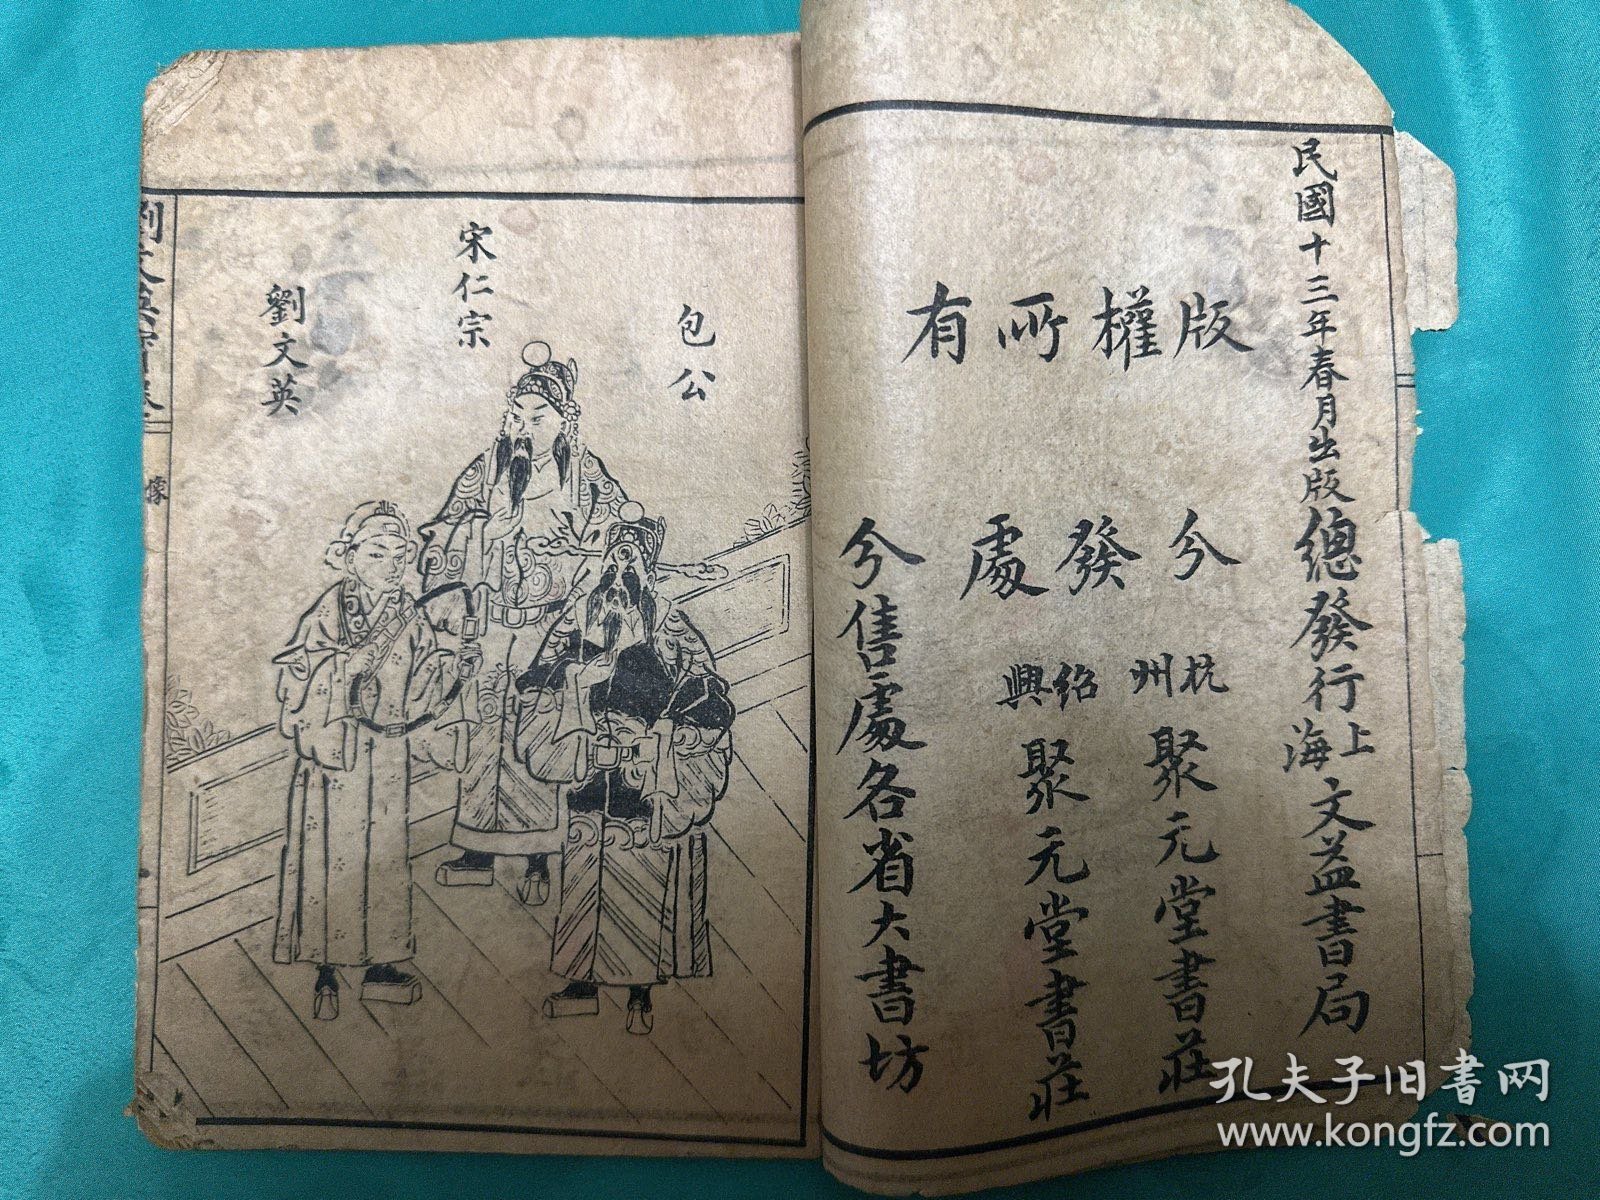 民國十三年春月出版總發行上海文益書局
版權所有
分發處
杭州聚元堂書莊
紹興聚元堂書莊
分售處各省大書坊
包公
宋仁宗
劉文英
劉文英寶卷
像
孔夫子旧书网
www.kongfz.com